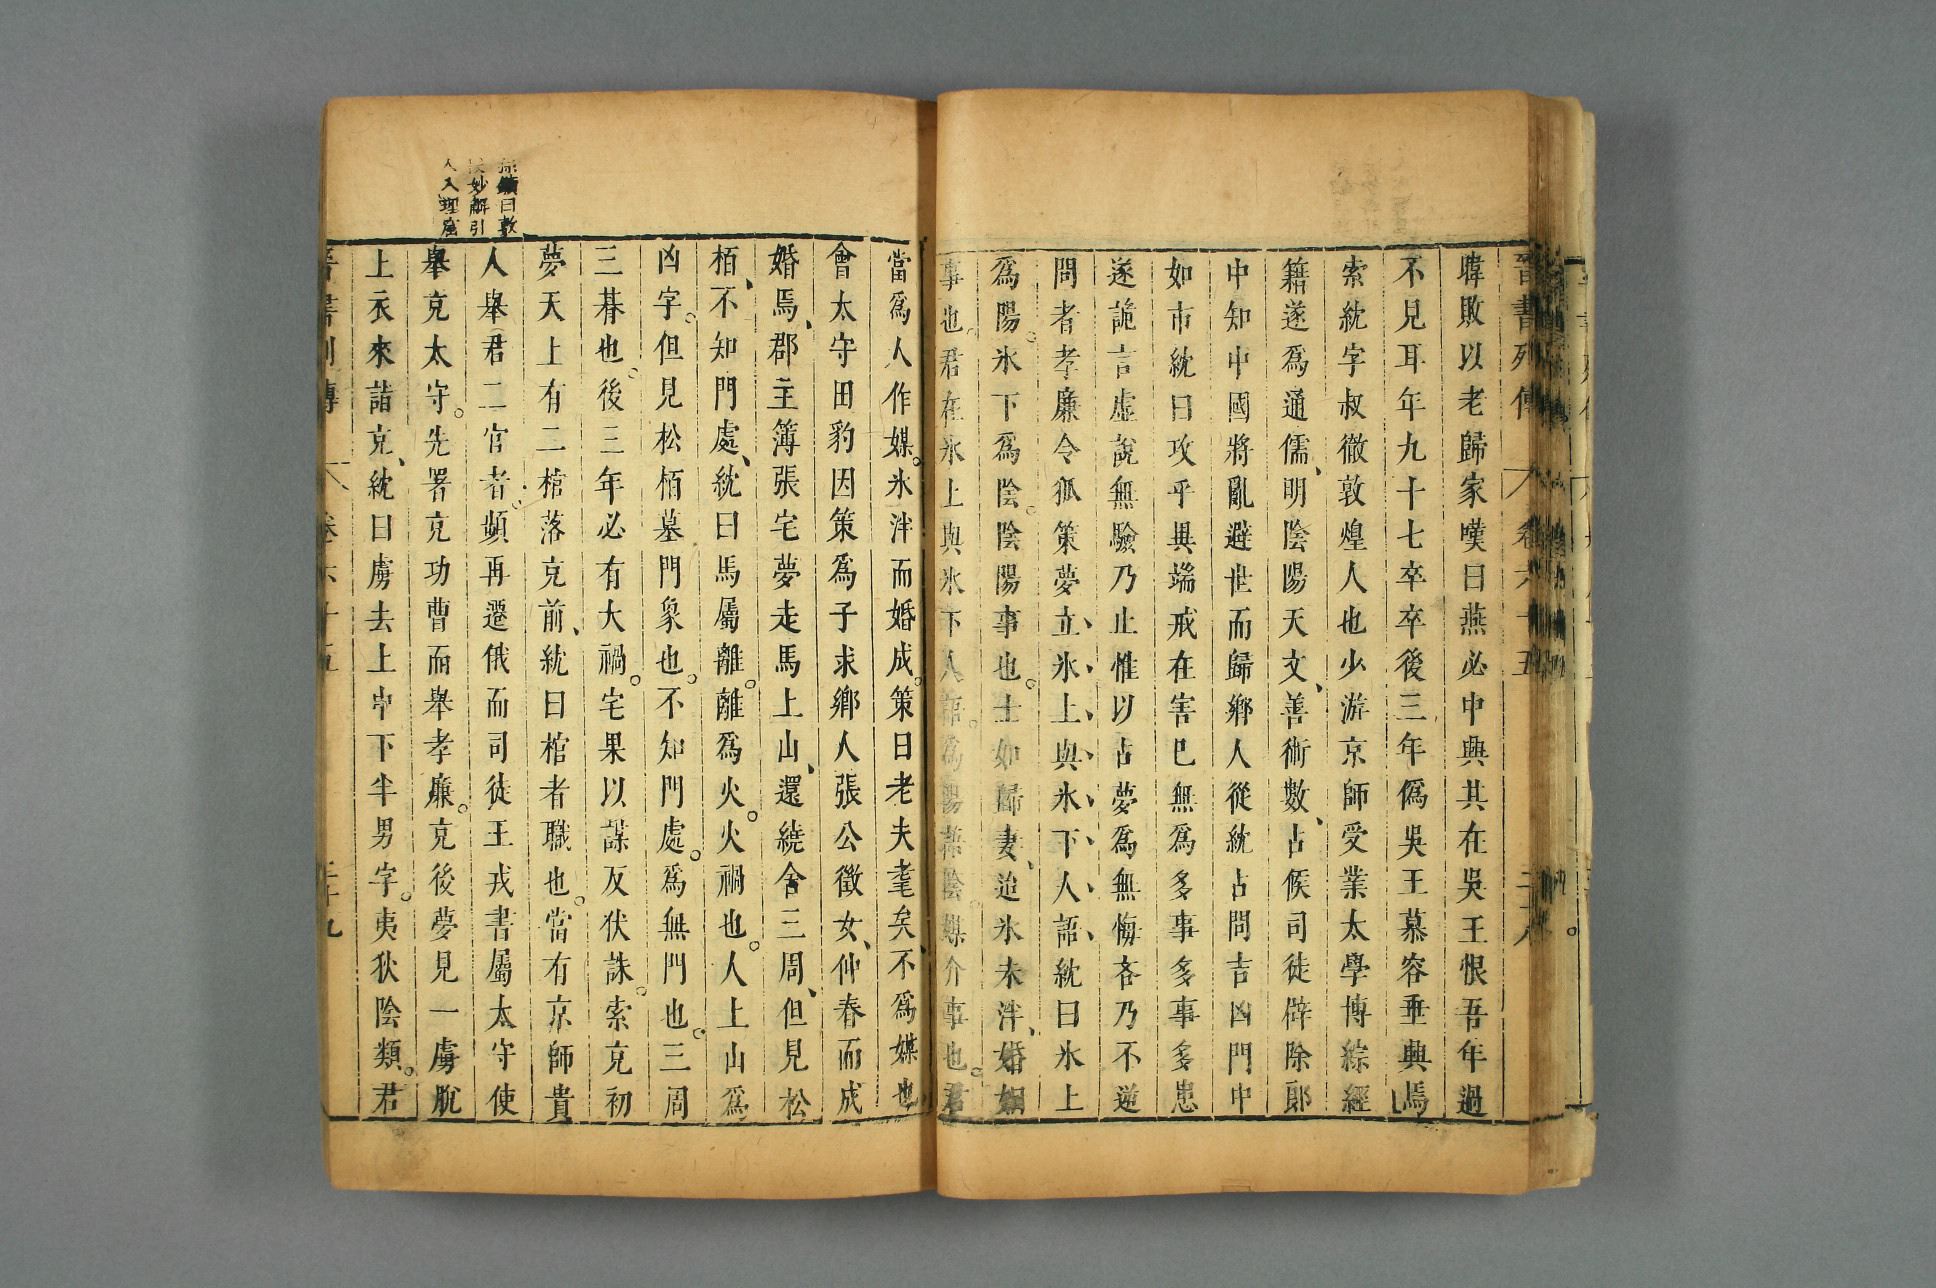 晉書列傳 卷六十五 二十八
暐敗以老歸家嘆曰燕必中興其在吳王恨吾年過
不見耳年九十七卒卒後三年僞吳王慕容垂興焉
索紞字叔徹敦煌人也少游京師受業太學博綜經
籍遂爲通儒、明陰陽天文、善術數、占候司徒辟除郎
中知中國將亂避世而歸鄉人從紞占問吉凶門中
如市紞曰攻乎異端戒在害已無爲多事多事多患
遂詭言虛說無驗乃止惟以占夢爲無悔吝乃不逆
問者孝廉令狐策夢立、氷、上、與、氷、下、人、語、紞曰氷上
爲陽。氷下爲陰。陰陽事也。士如歸妻、迨氷未泮、婚姻
事也。君在氷上與氷下人語。爲陽語陰。媒介事也。君
當爲人作媒。氷泮而婚成。策曰老夫耄矣、不爲媒也
會太守田豹因策爲子求鄉人張公徵女、仲春而成
婚焉、郡主簿張宅夢走馬上山、還繞舍三周、但見松
栢、不知門處、紞曰馬屬離。離爲火。火禍也。人上山爲
凶字。但見松栢墓門象也。不知門處。爲無門也。三周
三朞也。後三年必有大禍。宅果以謀反伏誅。索充初
夢天上有二棺落充前、紞曰棺者職也。當有京師貴
人舉君二官者。頻再遷俄而司徒王戎書屬太守使
舉充太守。先署充功曹而舉孝廉。充後夢見一虜脫
上衣來詣充、紞曰虜去上中下半男字。夷狄陰類。君
晉書列傳 卷六十五 二十九
曰敷
妙解引
人入理窟